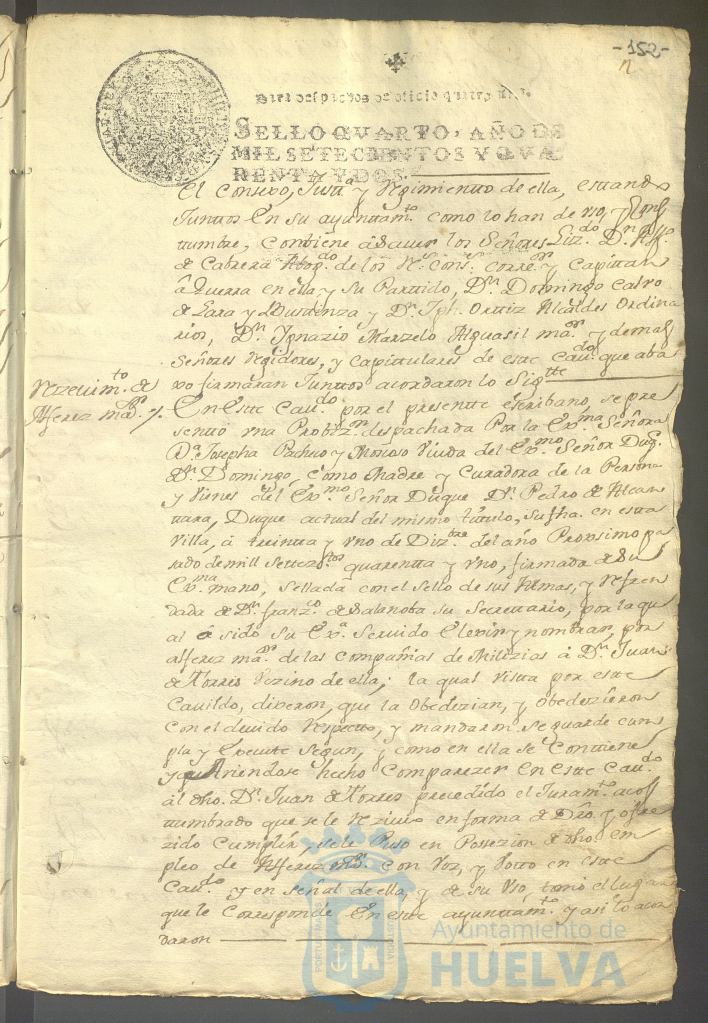 -152-
n
Para despachos de oficio quatro mrs.
SELLO QVARTO, AÑO DE
MIL SETECIENTOS Y QVA
RENTA Y DOS.
El Consexo, Justta. y Regimientto de ella, estando
Junttos En su ayunttamto. como lo han de vso, y Cos
tumbre, Conbiene a sauer los Señores Lizdo. Dn.
de Cabrera Abogdo. de los Rs. Consos. correor. y Capittan
á Guerra en ella y su Partido, Dn. Domingo Calvo
de Lara y Dn. Jph. Orttiz Alcaldes Ordina
rios, Dn. Ignazio Marzelo Alguasil maor. y demas
Señores Regidores, y Capittulares de estte Caudo. que aba
xo firmaran Junttos acordaron lo Sigtte
Rezeuimto. de
Alferez maor.
En Estte Caudo. por el presentte escribano, se pre
senttó vna Probizon. despachada Por la Exma. Señora
Da. Josepha Pacheco y Moscoso Viuda del Exmo. Señor Duq.
Dn. Domingo, como Madre y Curadora de la Persona
y vienes del Exmo. Señor Duque Dn. Pedro de Alcan
ttara, Duque actual del mismo título, su fha. en estta
Villa, á treintta y vno de Dizbre. del año Proximo pa
sado de mill Settezttos. quarentta y vno, firmada de su
Exma. mano, sellada con el sello de sus Armas, y refren
dada de Dn. Franzco. de Salanoba su Secrettario, por la qu
al á sido su Exa. Seruido Elexir y nombrar, por
alferez maor. de las compañias de Milizias á Dn. Juan
de Torres Vezino de ella; la qual Vista por estte
Cauildo, dixeron, que la Obedezian, y Obedezieron
con el deuido respecto, y mandaron se guarde cum
pla y Execute segun, y como en ella se Conttiene
y auiendose hecho Comparezer En Estte Caudo.
al dho. Dn. Juan de Torres precedido el Juramto. acos
tumbrado que se le reziuio en forma de Dro. y ofre
zido Cumplir, se le Puso en Possezion de dho. em
pleo de Alferez maor. con Voz, y Votto en estte
Caudo. y en señal de ella, y de su Vso, tomó el lugar
que le Corresponde En este ayunttamto. y asi lo acor
daron
Ayuntamiento de
HUELVA